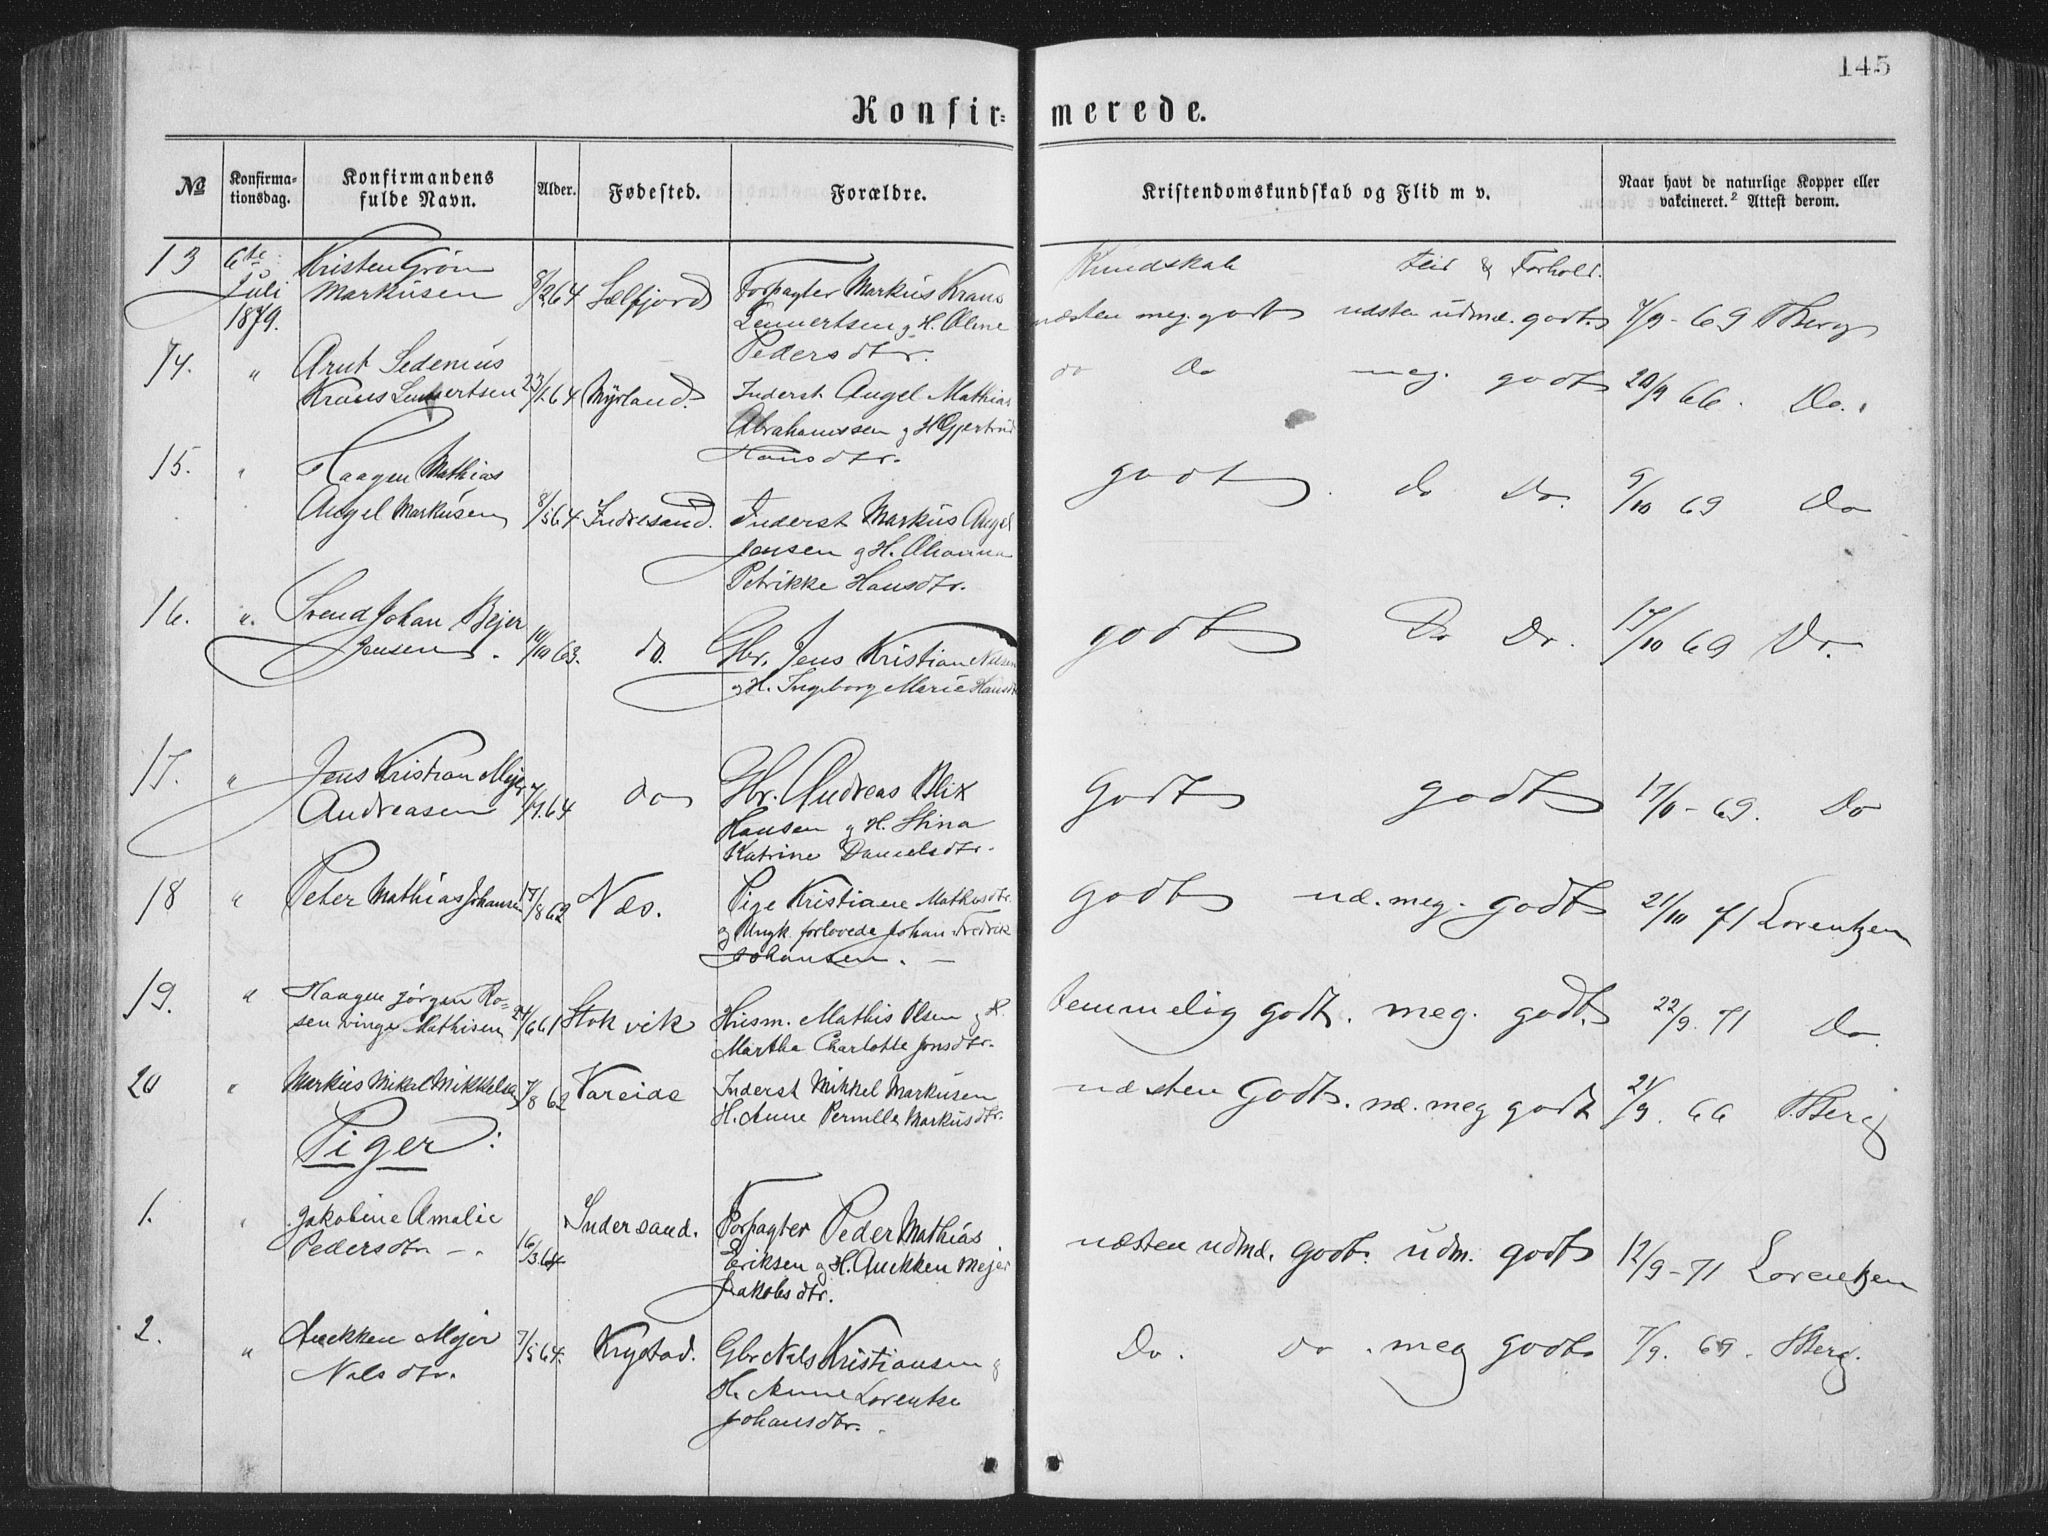 145
Konfirmerede.
№ Konfirma-tionsdag. Konfirmandens fulde Navn. Alder. Fødested. Forældre. Kristendomskundskab og Flid m v. Naar havt de naturlige Kopper eller vakcineret.² Attest derom.
Kundskab Flid & Forhold.
13 6te Juli 1879. Kristen Grøn Markusen 8/2 64 Selfjord Forpagter Markus Krans Lennertsen og H. Oline Pedersdtr. næsten meg. godt næsten udmæ. godt. 7/9 - 69 HBerg
14. " Arnt Sedenius Krans Lennertsen 23/1 64 Myrland. Inderst Angel Mathias Abrahamssen og H Gjertrud Hansdtr. do Do meg. godt 20/9 66. Do.
15. " Haagen Mathias Angel Markusen 8/5 64 Indresand. Inderst Markus Angel Jensen og H. Olianna Petrikke Hansdtr. godt. do Do. 9/10 69 Do
16. ". Svend Johan Bejer Jensen. 10/10 63. do. Gbr. Jens Kristian Nilsen og H. Ingeborg Marie Hansdtr godt Do Do. 17/10 69 Do.
17. " Jens Kristian Mejer Andreasen 7/7. 64 do Gbr. Andreas Blix Hansen og H. Stina Katrine Danielsdtr. godt godt 17/10 - 69. Do
18 " Peter Mathias Johansen 17/8 62 Næs. Pige Kristiane Mathisdtr og Ungk. forlovede Johan Fredrik Johansen. — godt næ. meg. godt 21/10 71 Lorentzen
19. " Haagen Jørgen Ro=senvinge Mathisen 24/6 61 Stokvik Husm. Mathis Olsen og H. Martha Charlotte Jonsdtr. temmelig godt. meg. godt. 22/9. 71 Do.
20 " Markus Mikal Mikkelsen 7/8 62 Vareide Inderst Mikkel Markusen H. Anne Pernille Markusdtr. næsten Godt. næ. meg godt 21/9. 66 HBerg
Piger:
1. " Jakobine Amalie Pedersdtr —. 16/3 64 Indersand. Forpagter Peder Mathias Eriksen og H. Anekken Mejer Jakobsdtr. næsten udmæ. godt. udm. godt 12/9 - 71 Lorentzen
2. " Anekken Mejer Nilsdtr. 7/5 64. Krystad. Gbr Nils Kristiansen og H. Anne Lorentze Johansdtr. Do. do. meg godt 7/9. 69. HBerg.